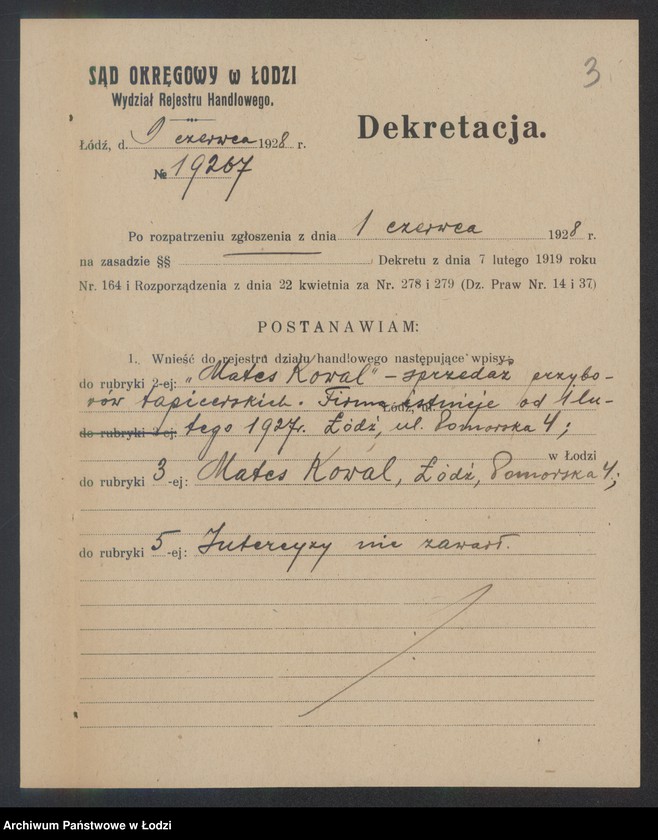 3
SĄD OKRĘGOWY w ŁODZI
Wydział Rejestru Handlowego.
Dekretacja.
Łódź, d. 9 czerwca 1928 r.
№ 19267
Po rozpatrzeniu zgłoszenia z dnia 1 czerwca 1928 r.
na zasadzie §§ Dekretu z dnia 7 lutego 1919 roku
Nr. 164 i Rozporządzenia z dnia 22 kwietnia za Nr. 278 i 279 (Dz. Praw Nr. 14 i 37)
POSTANAWIAM:
1. Wnieść do rejestru działu handlowego następujące wpisy:
do rubryki 2-ej: „Mates Kowal" – sprzedaż przybo-
rów tapicerskich. Firma istnieje od 1 lu-
Łódź, ul.
do rubryki 3-ej: tego 1927r. Łódź, ul. Pomorska 4;
w Łodzi
do rubryki 3-ej: Mates Kowal, Łódź, Pomorska 4;
do rubryki 5-ej: Intercyzy nie zawarł.
Archiwum Państwowe w Łodzi